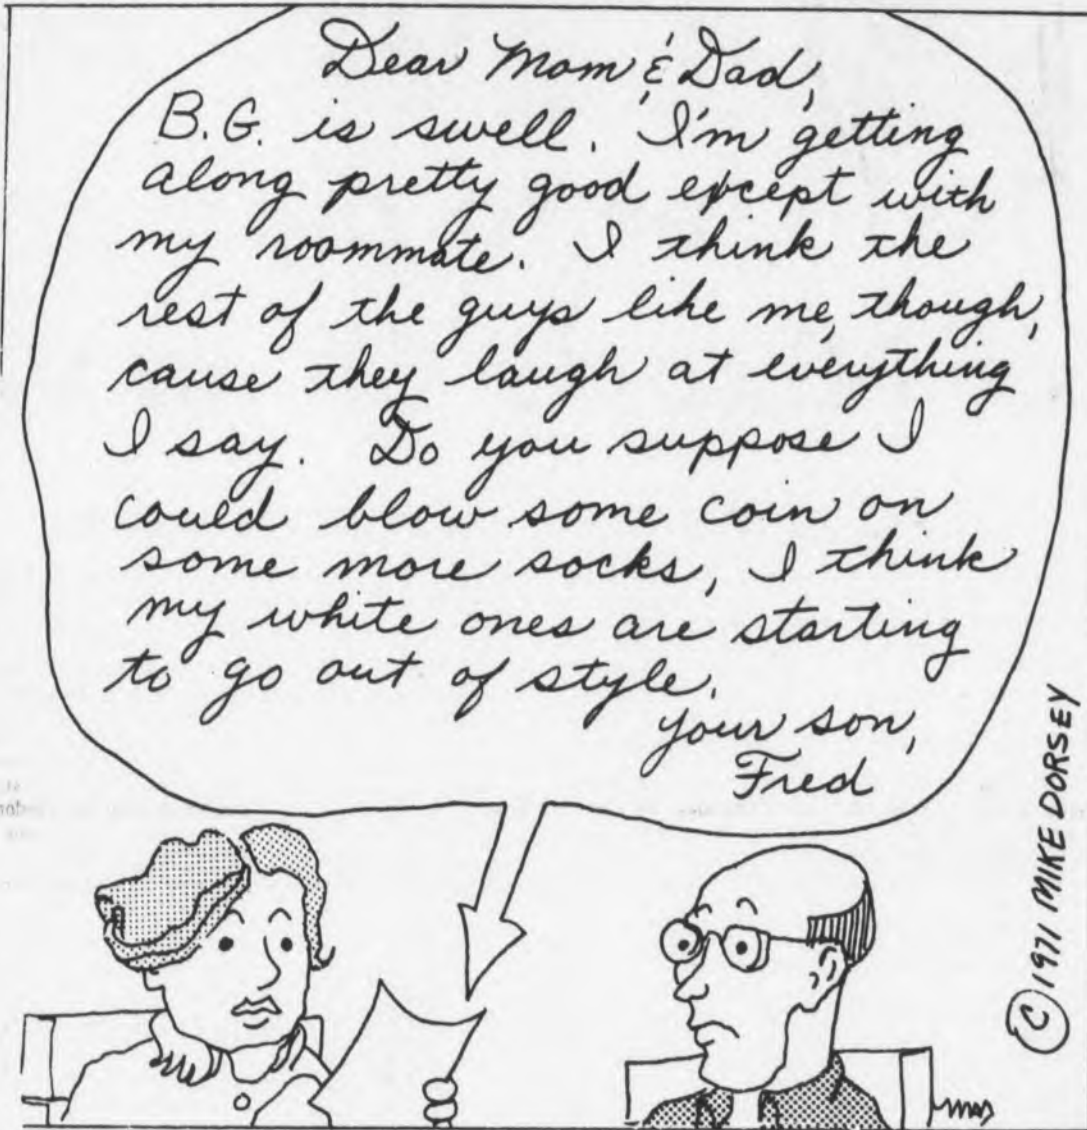 Dear Mom & Dad,
B.G. is swell. I'm getting
along pretty good except with
my roommate. I think the
rest of the guys like me, though,
cause they laugh at everything
I say. Do you suppose I
could blow some coin on
some more socks, I think
my white ones are starting
to go out of style.
your son,
Fred
© 1971 MIKE DORSEY